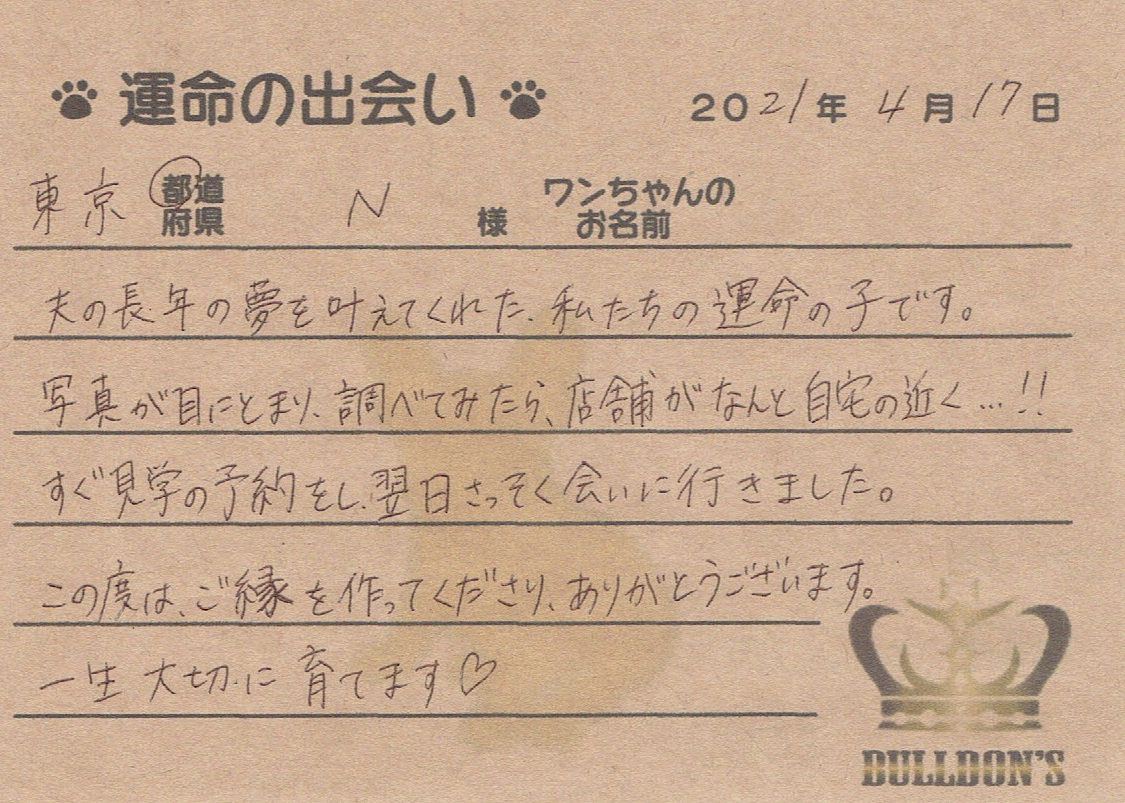 運命の出会い 2021年4月17日
東京 都道府県 N 様 ワンちゃんのお名前
夫の長年の夢を叶えてくれた、私たちの運命の子です。
写真が目にとまり、調べてみたら、店舗がなんと自宅の近く…!!
すぐ見学の予約をし、翌日さっそく会いに行きました。
この度は、ご縁を作ってくださり、ありがとうございます。
一生大切に育てます♡
BULLDON'S